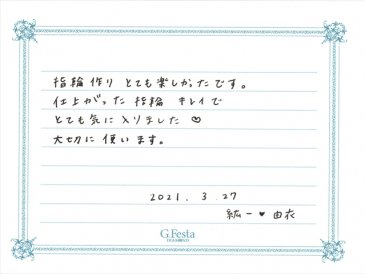 指輪作り とても楽しかったです。
仕上がった 指輪 キレイで
とても気に入りました ♡
大切に 使います。
2021. 3. 27
紘一 ♥ 由衣
G.Festa
DIAMOND